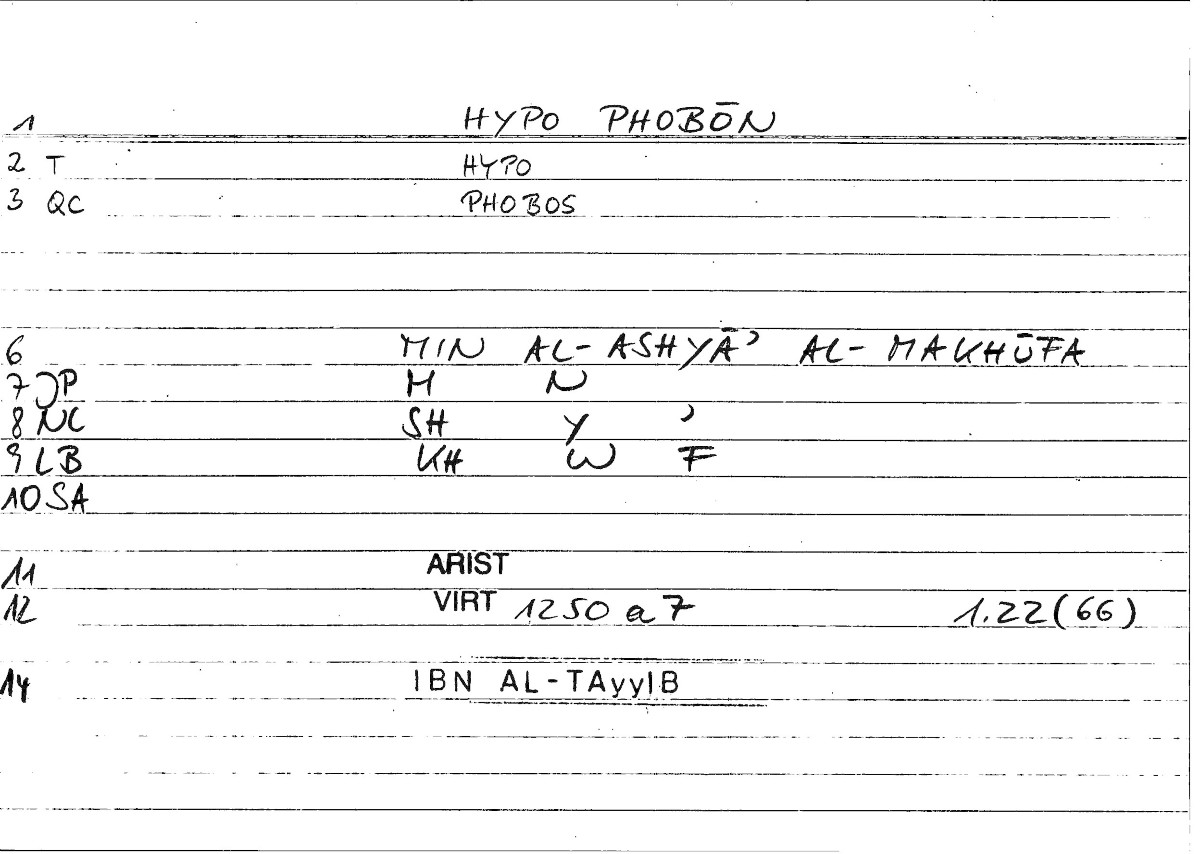 1 HYPO PHOBŌN
2 T HYPO
3 QC PHOBOS
6 MIN AL-ASHYĀʾ AL-MAKHŪFA
7 JP M N
8 NC SH Y ʾ
9 LB KH W F
10 SA
11 ARIST
12 VIRT 1250 a 7 1.22(66)
14 IBN AL-TAyyIB